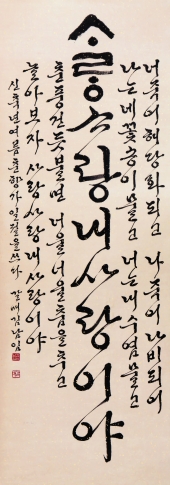 너 죽어 해당화 되고 나 죽어 나비되어
나는 네 꽃송이 물고 너는 내 수염 물고
사랑 사랑 내 사랑이야
춘풍 건듯 불면 너울너울 춤을 추고
놀아보자 사랑 사랑 내 사랑이야
신축년 여름 춘향가 일절을 쓰다 갈매 김남임